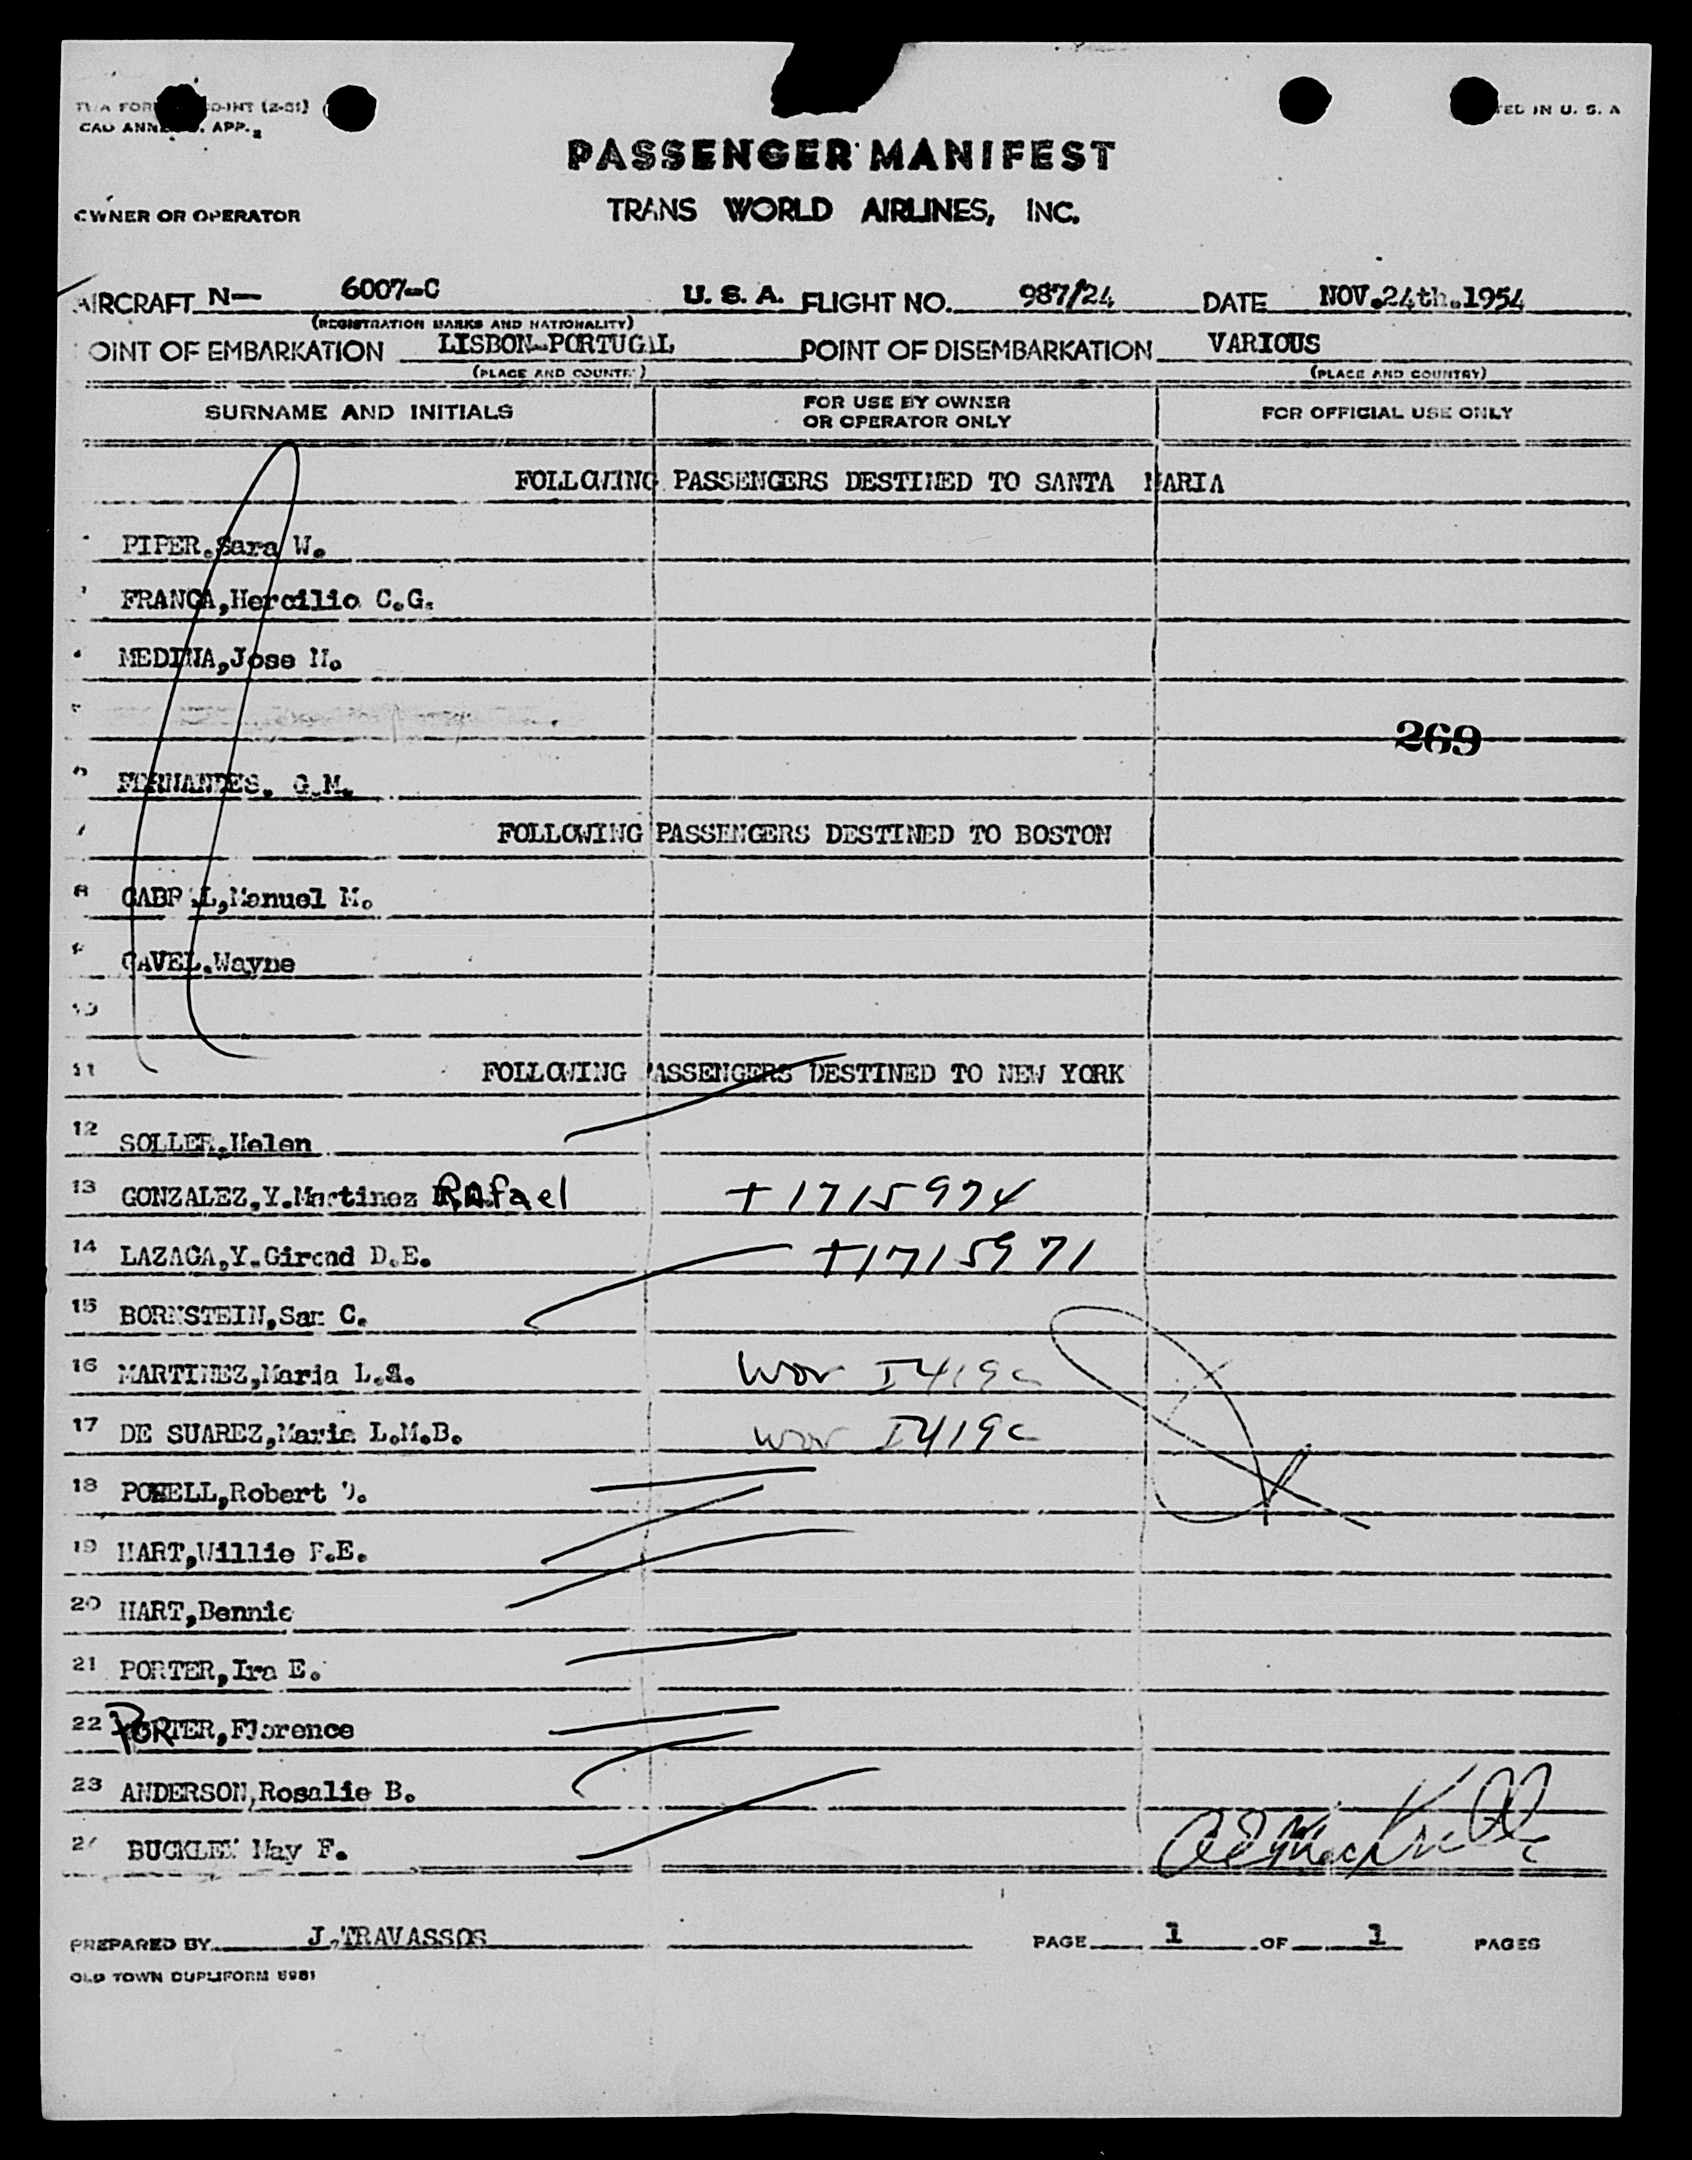 (2-51)
CAO APP. 2
U. S. A
PASSENGER MANIFEST
OWNER OR OPERATOR TRANS WORLD AIRLINES, INC.
AIRCRAFT N— 6007-C U. S. A. FLIGHT NO. 987/24 DATE NOV.24th.1954
(REGISTRATION MARKS AND NATIONALITY)
OINT OF EMBARKATION LISBON-PORTUGAL POINT OF DISEMBARKATION VARIOUS
(PLACE AND COUNTRY) (PLACE AND COUNTRY)
SURNAME AND INITIALS FOR USE BY OWNER OR OPERATOR ONLY FOR OFFICIAL USE ONLY
FOLLOWING PASSENGERS DESTINED TO SANTA MARIA
PIPER.Sara W.
FRANCA,Hercilio C.G.
MEDINA,Jose
269
FERNANDES. G.M.
FOLLOWING PASSENGERS DESTINED TO BOSTON
8 CABRAL,Manuel M.
GAVEL.Wayne
10
11 FOLLOWING PASSENGERS DESTINED TO NEW YORK
12 SOLLER.Helen
13 GONZALEZ,Y.Martinez RAfael T1715974
14 LAZAGA,Y.Girond D.E. T1715971
15 BORNSTEIN,Sam C.
16 MARTINEZ,Maria L.S. WOV I419c
17 DE SUAREZ,Maria L.M.B. WOV I419c
18 POWELL,Robert
19 HART,Willie F.E.
20 HART,Bennie
21 PORTER,Ira E.
22 PORTER,Florence
23 ANDERSON,Rosalie B.
24 BUCKLEY May F.
PREPARED BY J.TRAVASSOS PAGE 1 OF 1 PAGES
OLD TOWN DUPLIFORM 5981